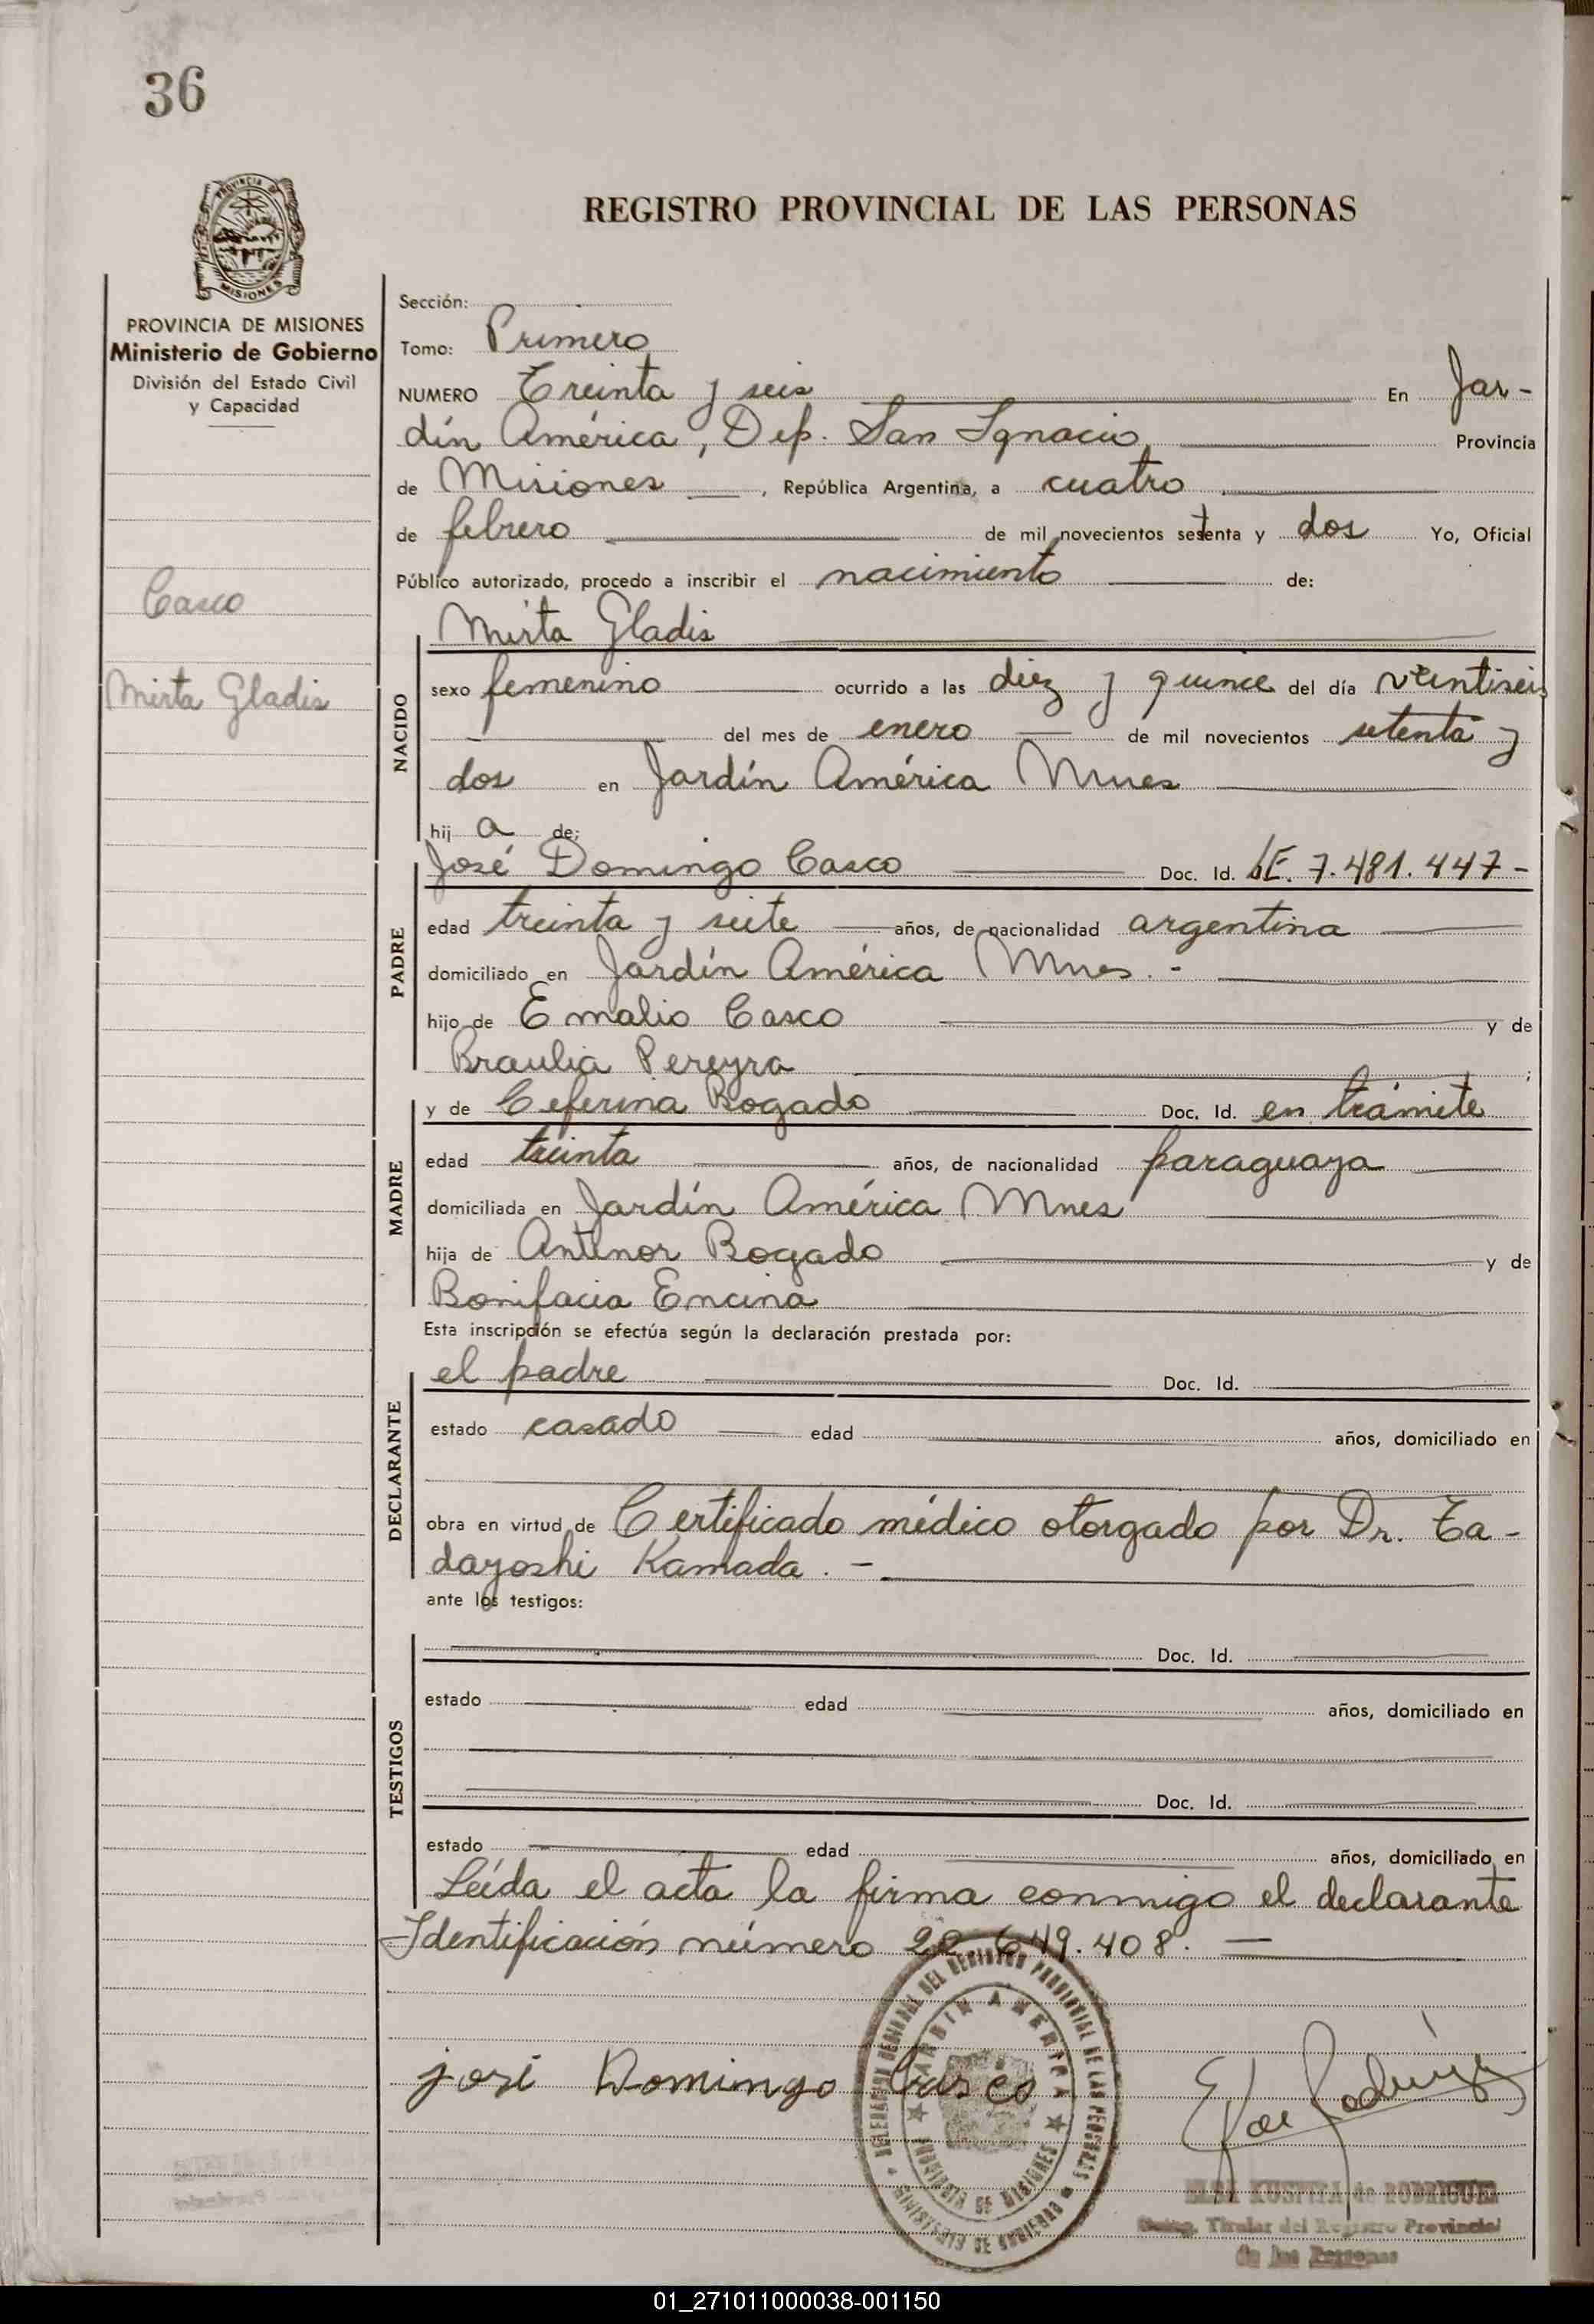 36
PROVINCIA DE
MISIONES
REGISTRO PROVINCIAL DE LAS PERSONAS
PROVINCIA DE MISIONES
Ministerio de Gobierno
División del Estado Civil
y Capacidad
Casco
Mirta Gladis
Sección:
Tomo: Primero
NUMERO Treinta y seis En Jar-
dín América, Dep. San Ignacio, Provincia
de Misiones, República Argentina, a cuatro
de febrero de mil novecientos setenta y dos Yo, Oficial
Público autorizado, procedo a inscribir el nacimiento de:
NACIDO
Mirta Gladis
sexo femenino ocurrido a las diez y quince del día veintiseis
del mes de enero de mil novecientos setenta y
dos en Jardín América Mnes
hij a de:
PADRE
José Domingo Casco Doc. Id. LE. 7.481.447-
edad treinta y siete años, de nacionalidad argentina
domiciliado en Jardín América Mnes.-
hijo de Emalio Casco y de
Braulia Pereyra ;
MADRE
y de Ceferina Bogado Doc. Id. en trámite
edad treinta años, de nacionalidad paraguaya
domiciliada en Jardín América Mnes
hija de Antenor Bogado y de
Bonifacia Encina
Esta inscripción se efectúa según la declaración prestada por:
DECLARANTE
el padre Doc. Id.
estado casado edad años, domiciliado en
obra en virtud de Certificado médico otorgado por Dr. Ta-
dayoshi Kamada.-
ante los testigos:
TESTIGOS
Doc. Id.
estado edad años, domiciliado en
Doc. Id.
estado edad años, domiciliado en
Leída el acta la firma conmigo el declarante
Identificación número 22.649.408.
josé Domingo Casco
DELEGACION DEL REGISTRO PROVINCIAL DE LAS PERSONAS
JARDIN AMERICA
MISIONES
de RODRIGUEZ
Titular del Registro Provincial
de las Personas
01_271011000038-001150